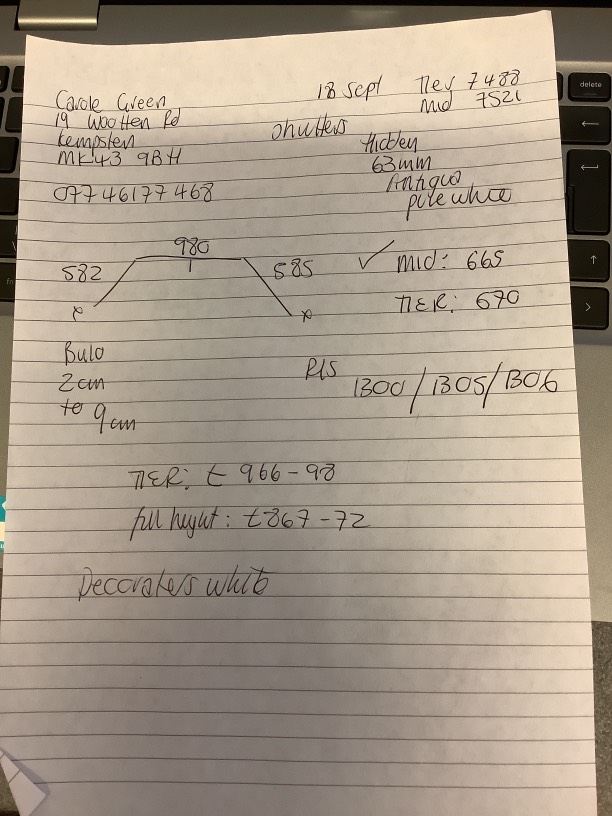 Carole Green
19 Wootten Rd
Kempsten
MK43 9BH
07746177468
18 sept
Tier 7488
Mid 7521
Shutters
Hidden
63mm
Antigua
pure white
980
582
585
✓ Mid: 665
TIER: 670
Bulo
2cm
to 9cm
R/S
1300/1305/1306
TIER: £ 966-98
full height: £867-72
Decoraters white
delete